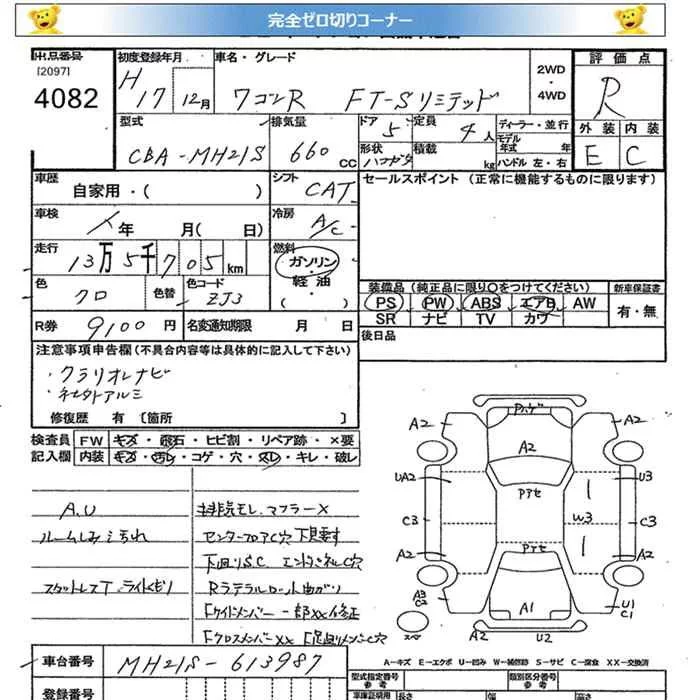 完全ゼロ切りコーナー
出品番号
[2097]
4082
初度登録年月
H17 12月
車名・グレード
ワゴンR FT-Sリミテッド
2WD
・
4WD
評価点
R
外装 内装
E C
型式
CBA-MH21S
排気量
660 CC
ドア 5
形状 ハコガタ
定員 4人
積載 kg
ディーラー・並行
モデル年式 年
ハンドル 左・右
車歴
自家用・( )
シフト CAT
セールスポイント (正常に機能するものに限ります)
車検
年 月( 日)
冷房 A/C
走行
13万5千705km
燃料
ガソリン
・
軽油
・
( )
色
クロ
色替
色コード
ZJ3
装備品 (純正品に限り○をつけてください)
PS PW ABS エアB AW
SR ナビ TV カワ
新車保証書
有・無
R券 9100円
名変通知期限 月 日
後日品
注意事項申告欄 (不具合内容等は具体的に記入して下さい)
・クラリオンナビ
・社外アルミ
修復歴 有 〔箇所 〕
検査員 FW キズ・飛石・ヒビ割・リペア跡・×要
記入欄 内装 キズ・汚レ・コゲ・穴・スレ・キレ・破レ
A.U
ルームしみ汚れ
スタットレスT ライトくもり
排気モレ マフラーX
センターフロアC穴 下見要す
下回りS.C
Rラテラルロット曲がり
Fサイドメンバー一部XX修正
FクロスメンバーXX
バハゲ
A2 A2
A2
UA2 U3
アセ
C3 W3 C3
A2 アセ A2
A3
C2
A1
U1
C1
スペ
A2 U2
A-キズ E-エクボ U-凹み W-補修跡 S-サビ C-腐食 XX-交換済
車台番号 MH21S-613987
登録番号
型式指定番号
参考
類別区分番号
参考
車庫証明用
長さ 幅 高さ